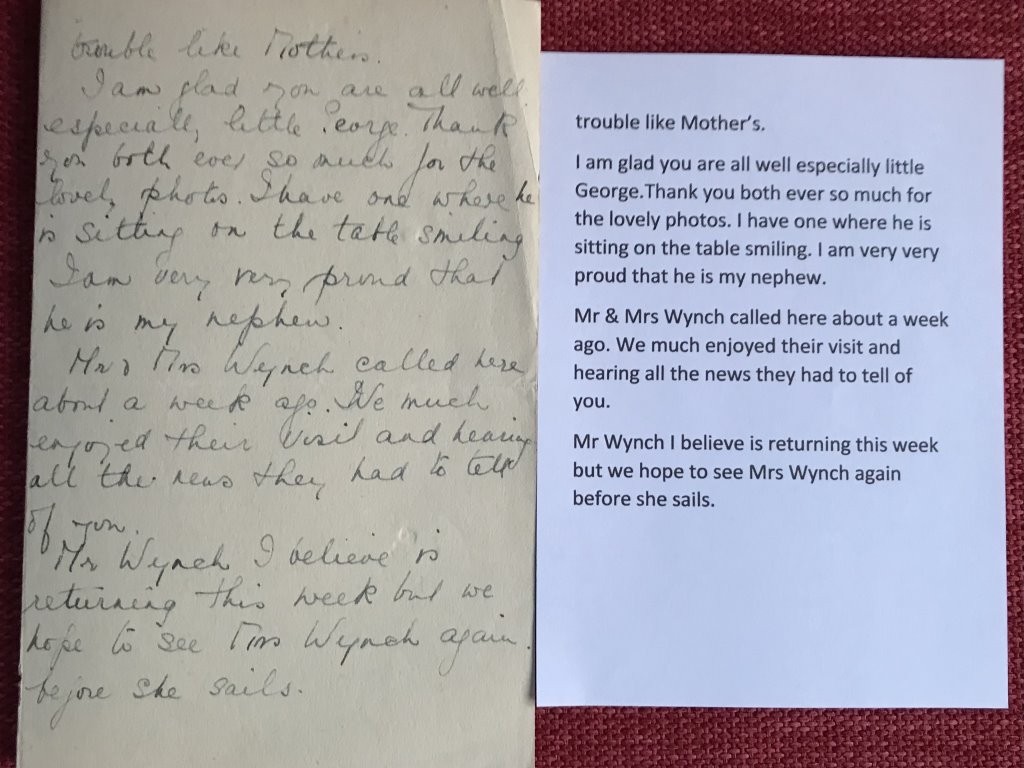 trouble like Mothers.
I am glad you are all well
especially little George. Thank
you both ever so much for the
lovely photos. I have one where he
is sitting on the table smiling
I am very very proud that
he is my nephew.
Mr & Mrs Wynch called here
about a week ago. We much
enjoyed their visit and hearing
all the news they had to tell
of you.
Mr Wynch I believe is
returning this week but we
hope to see Mrs Wynch again.
before she sails.
trouble like Mother's.
I am glad you are all well especially little
George.Thank you both ever so much for
the lovely photos. I have one where he is
sitting on the table smiling. I am very very
proud that he is my nephew.
Mr & Mrs Wynch called here about a week
ago. We much enjoyed their visit and
hearing all the news they had to tell of
you.
Mr Wynch I believe is returning this week
but we hope to see Mrs Wynch again
before she sails.